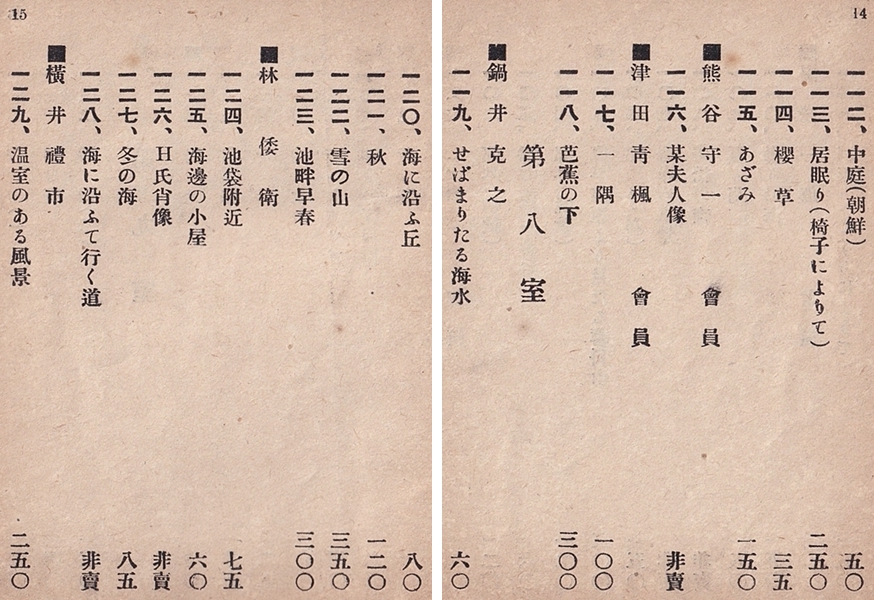 14
一一二、中庭(朝鮮) 五〇
一一三、居眠り(椅子によりて) 二五〇
一一四、櫻草 三五
一一五、あざみ 一五〇
■熊谷守一 會員
一一六、某夫人像 非賣
■津田青楓 會員
一一七、一隅 一〇〇
一一八、芭蕉の下 三〇〇
第八室
■鍋井克之
一一九、せばまりたる海水 六〇
15
一二〇、海に沿ふ丘 八〇
一二一、秋 一二〇
一二二、雪の山 三五〇
一二三、池畔早春 三〇〇
■林倭衛
一二四、池袋附近 七五
一二五、海邊の小屋 六〇
一二六、H氏肖像 非賣
一二七、冬の海 八五
一二八、海に沿ふて行く道 非賣
■横井禮市
一二九、温室のある風景 二五〇